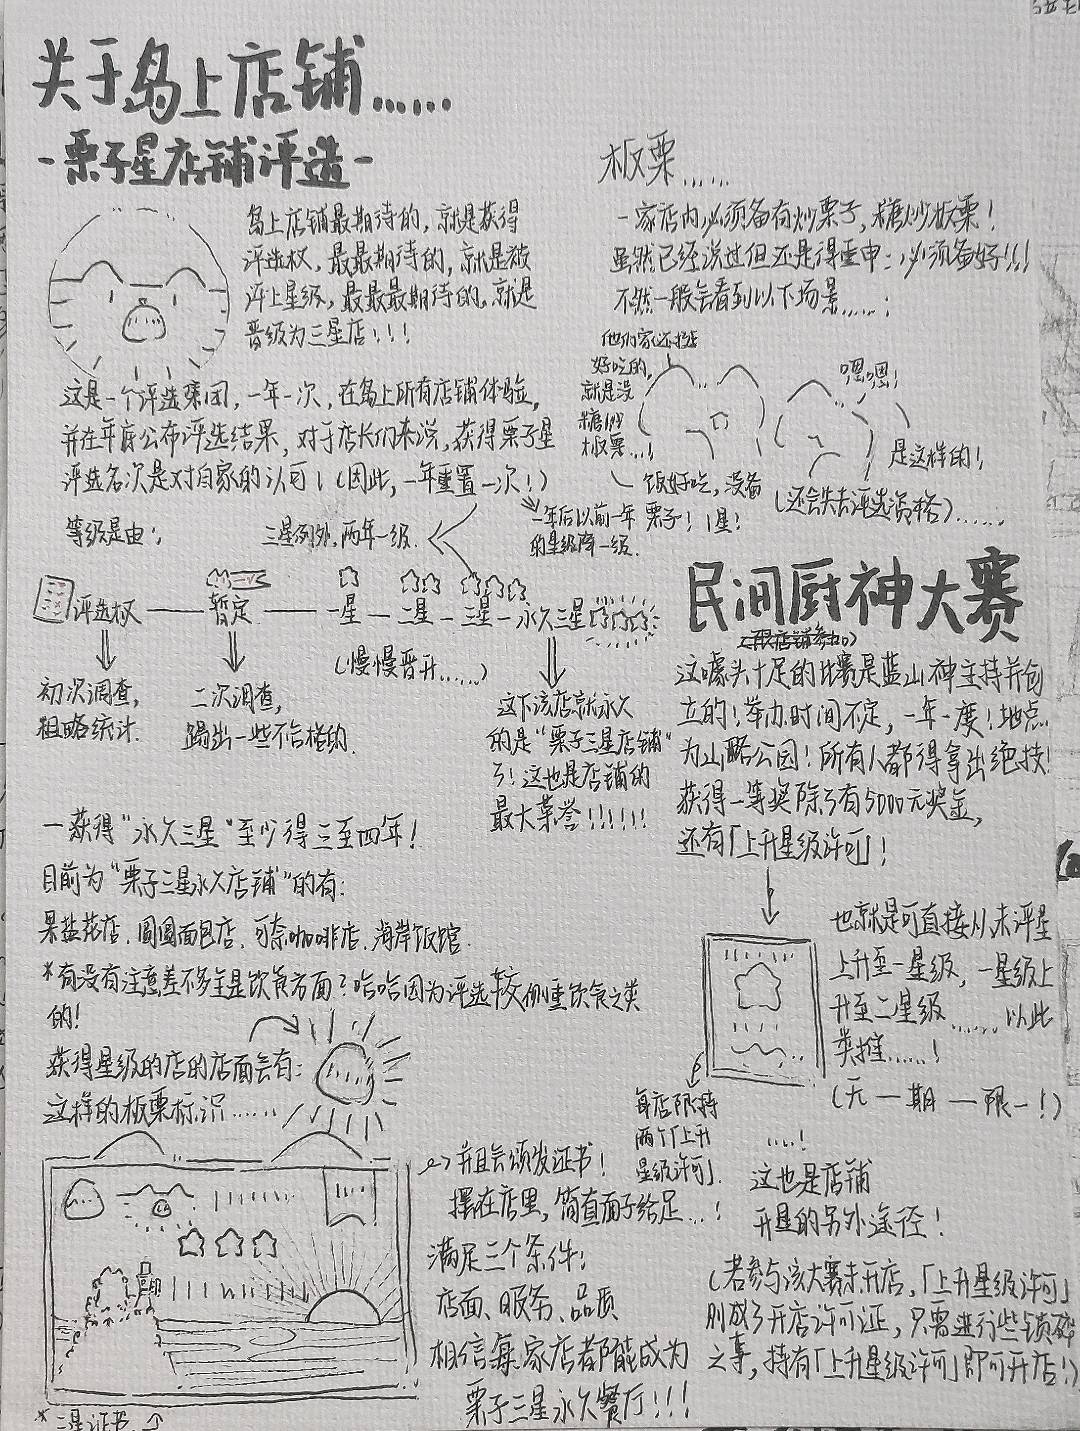 关于岛上店铺……
-栗子星店铺评选-
岛上店铺最期待的,就是获得
评选权,最最期待的,就是被
评上星级,最最最期待的,就是
晋级为三星店!!!
这是一个评选集团,一年一次,在岛上所有店铺体验,
并在年底公布评选结果,对于店长们来说,获得栗子星
评选名次是对自家的认可!(因此,一年重置一次!)
一年后以前一年
的星级降一级.
等级是由:
三星例外,两年一级.
评选权
暂定
一星
二星
三星
永久三星
初次调查,
粗略统计.
二次调查,
踢出一些不合格的.
(慢慢晋升……)
这下该店就永久
的是“栗子三星店铺”
了!这也是店铺的
最大荣誉!!!!!!
一获得“永久三星”至少得三至四年!
目前为“栗子三星永久店铺”的有:
果盐花店.圆圆面包店.可奈咖啡店.海岸饭馆.
*有没有注意差不多全是饮食方面?哈哈因为评选较侧重饮食之类
的!
获得星级的店的店面会有:
这样的板栗标识……
并且会颁发证书!
摆在店里,简直面子给足…!
满足三个条件:
店面、服务、品质
相信每家店都能成为
栗子三星永久餐厅!!!
*三星证书
板栗……
一家店内必须备有炒栗子,糖炒板栗!
虽然已经说过但还是得重申:必须备好!!!
不然一般会看到以下场景……:
他们家还挺
好吃的,
就是没
糖炒
板栗…!
嗯嗯!
是这样的!
饭好吃,没备
栗子!1星!
(还会失去评选资格)……
民间厨神大赛
(限店铺参加)
这噱头十足的比赛是蓝山神主持并创
立的!举办时间不定,一年一度!地点
为山略公园!所有人都得拿出绝技!
获得一等奖除了有5000元奖金,
还有「上升星级许可」!
也就是可直接从未评星
上升至一星级,一星级上
升至二星级……以此
类推……!
(无一期一限一!)
每店限持
两个「上升
星级许可」.
……!
这也是店铺
升星的另外途径!
(若参与该大赛未开店,「上升星级许可」
则成了开店许可证,只需进行些锁碎
之事,持有「上升星级许可」即可开店!)